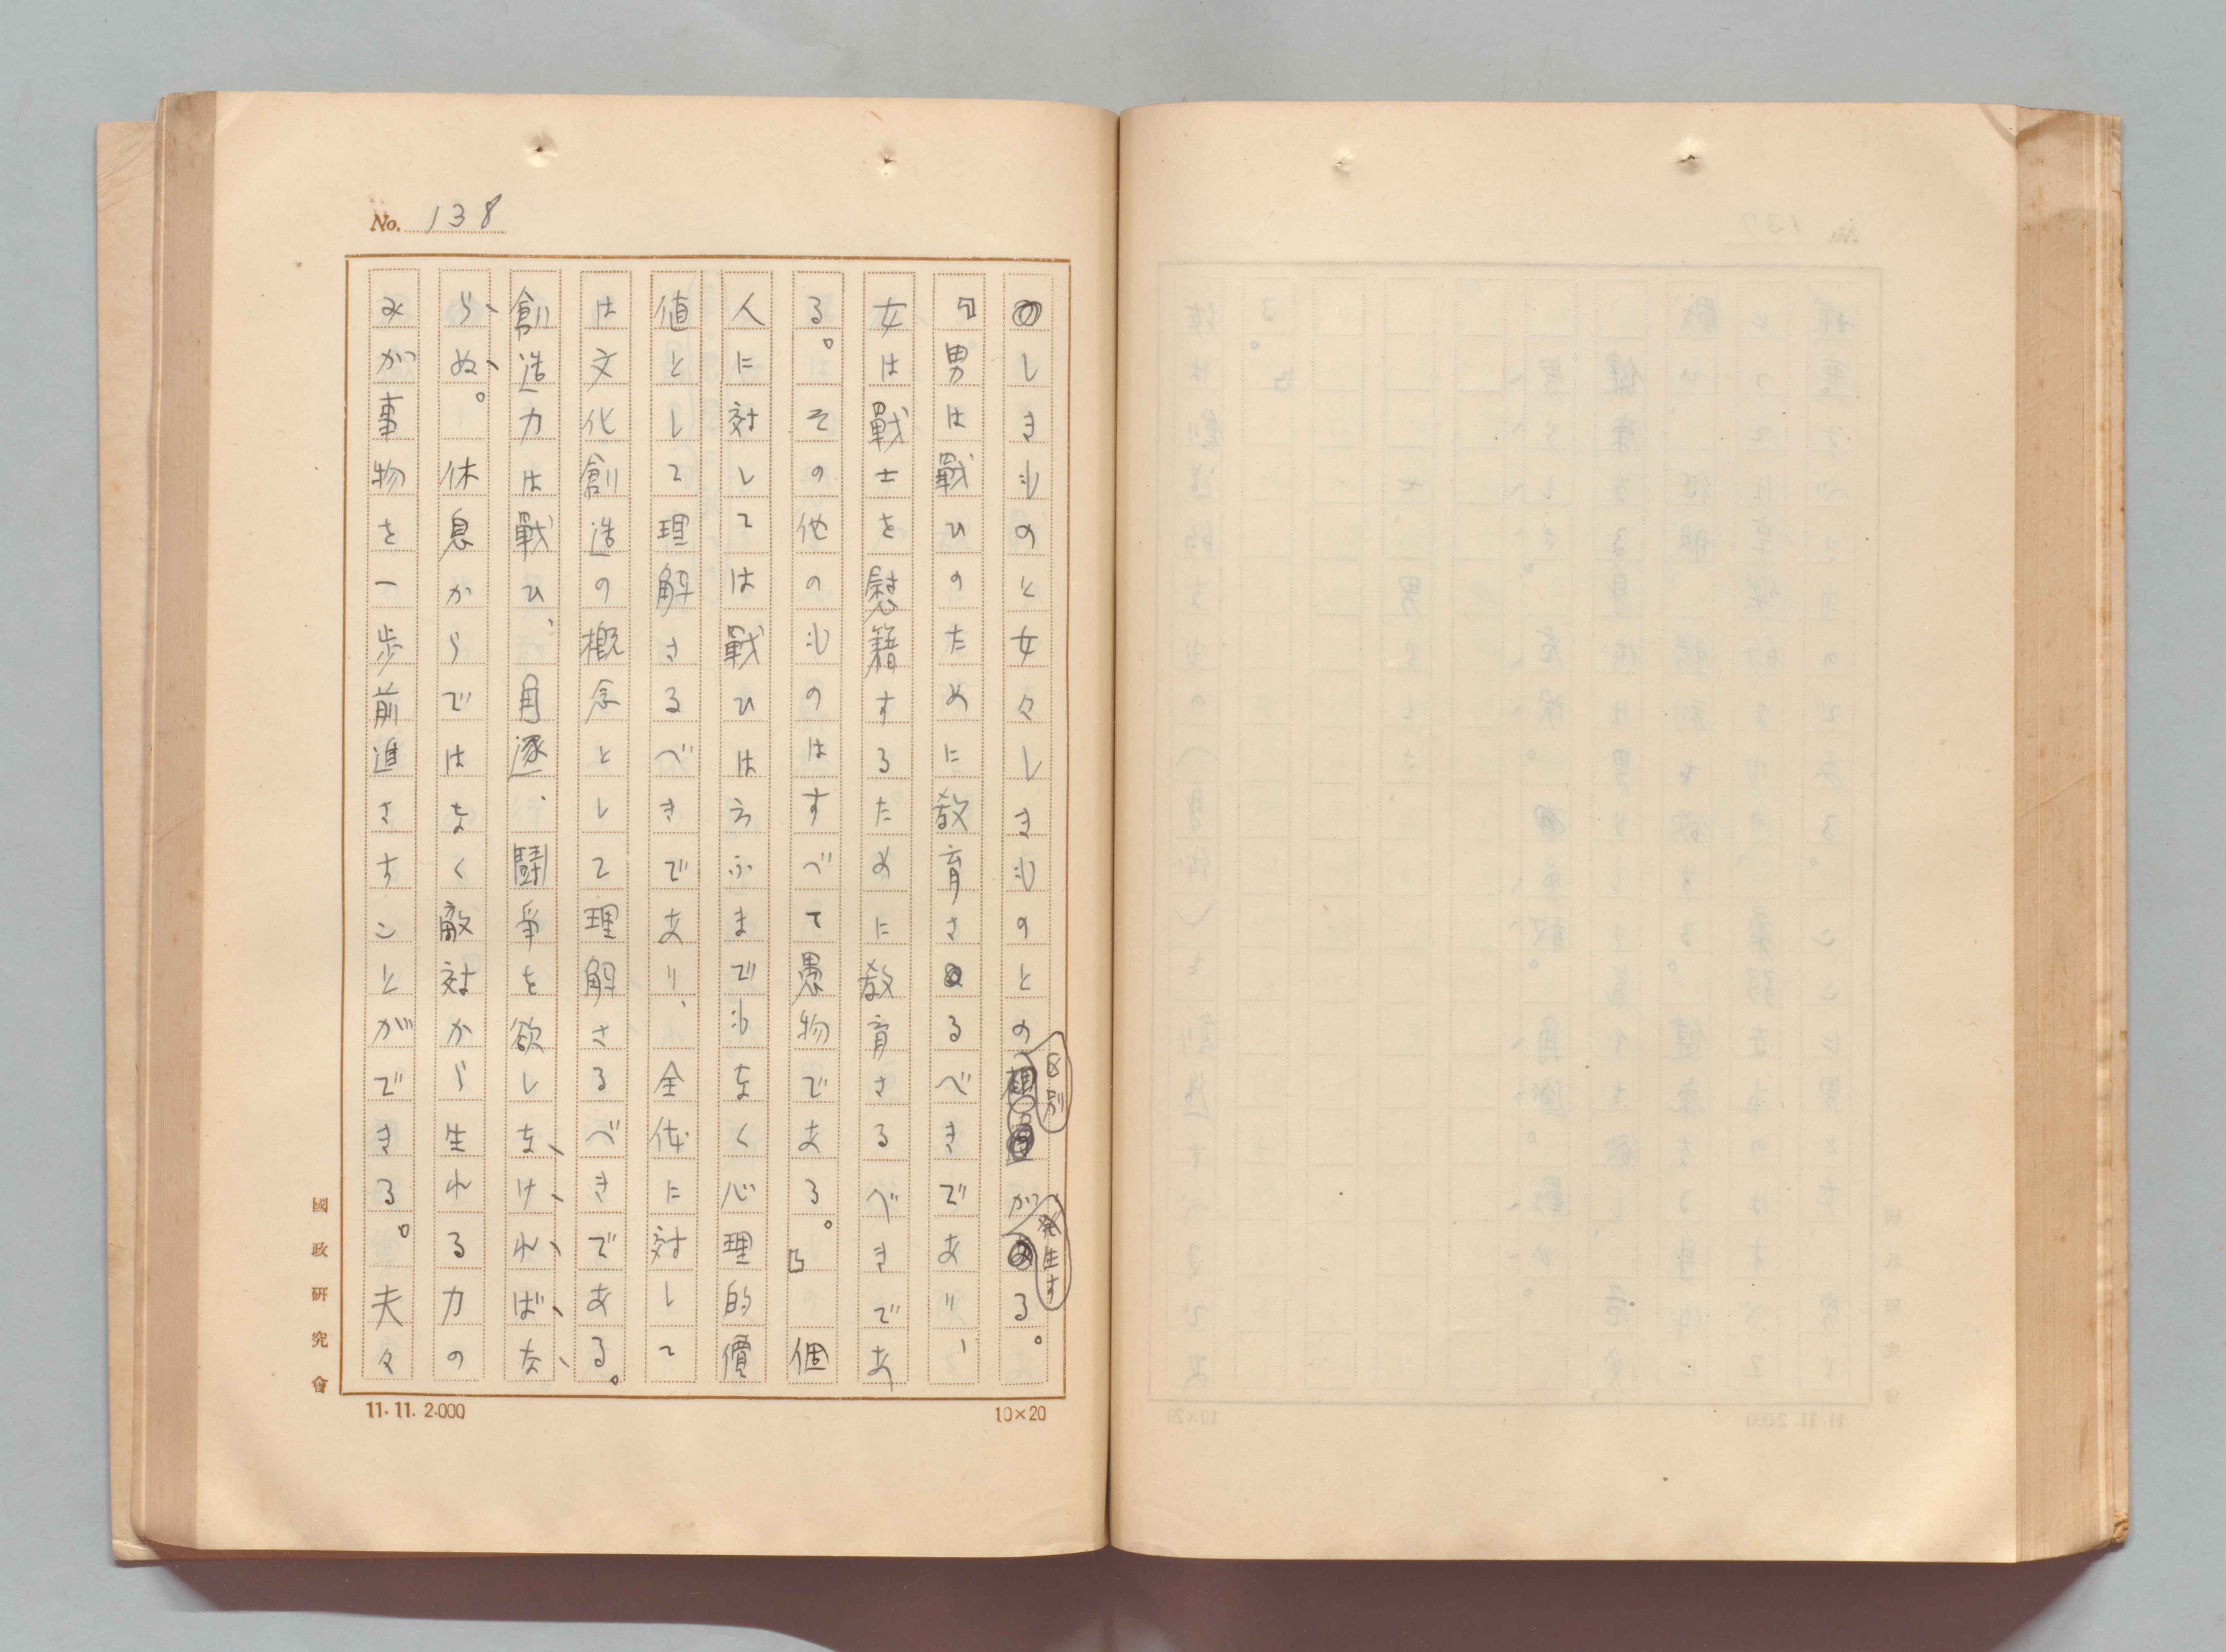 No. 138
しきものと女々しきものとの区別が発生する。
『男は戰ひのために教育さるべきであり、
女は戰士を慰籍するために教育さるべきであ
る。その他のものはすべて愚物である。』 個
人に対しては戰ひはろふまでもなく心理的價
値として理解さるべきであり、全体に対して
は文化創造の概念として理解さるべきである。
創造力は戰ひ、角逐、鬪爭を欲しなければな
らぬ。休息からではなく敵対から生れる力の
みが事物を一歩前進さすことができる。夫々
國政研究會
11.11.2.000
10×20